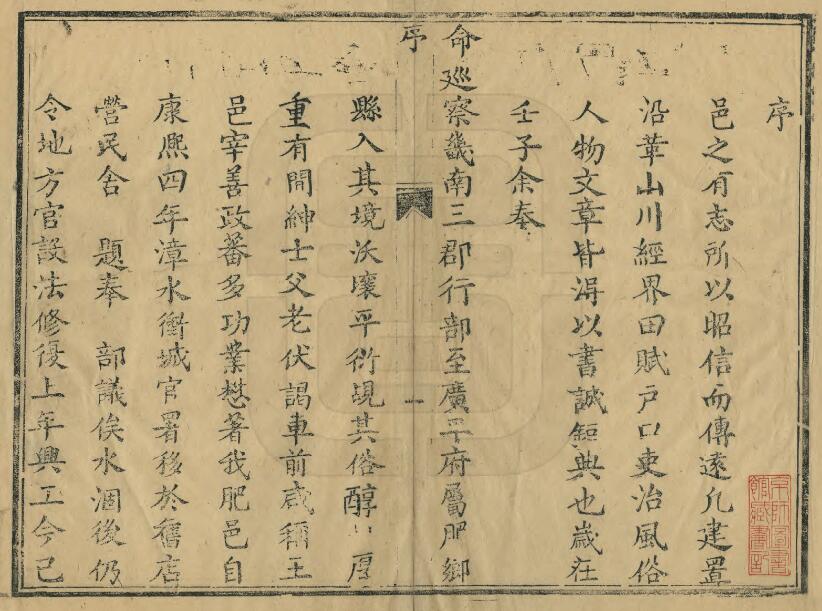 序
邑之有志所以昭信而傳遠凡建置
沿革山川經界田賦戸口吏治風俗
人物文章皆淂以書誠鉅典也歲在
壬子余奉
命廵察畿南三郡行部至廣平府屬肥鄉
序
一
縣入其境沃壤平衍覘其俗醇厚
重有間紳士父老伏謁車前咸稱王
邑宰善政蕃多功業懋著我肥邑自
康熈四年漳水衝城官署移於舊店
營民舍 題奉 部議俟水涸後仍
令地方官設法修復上年興工今已